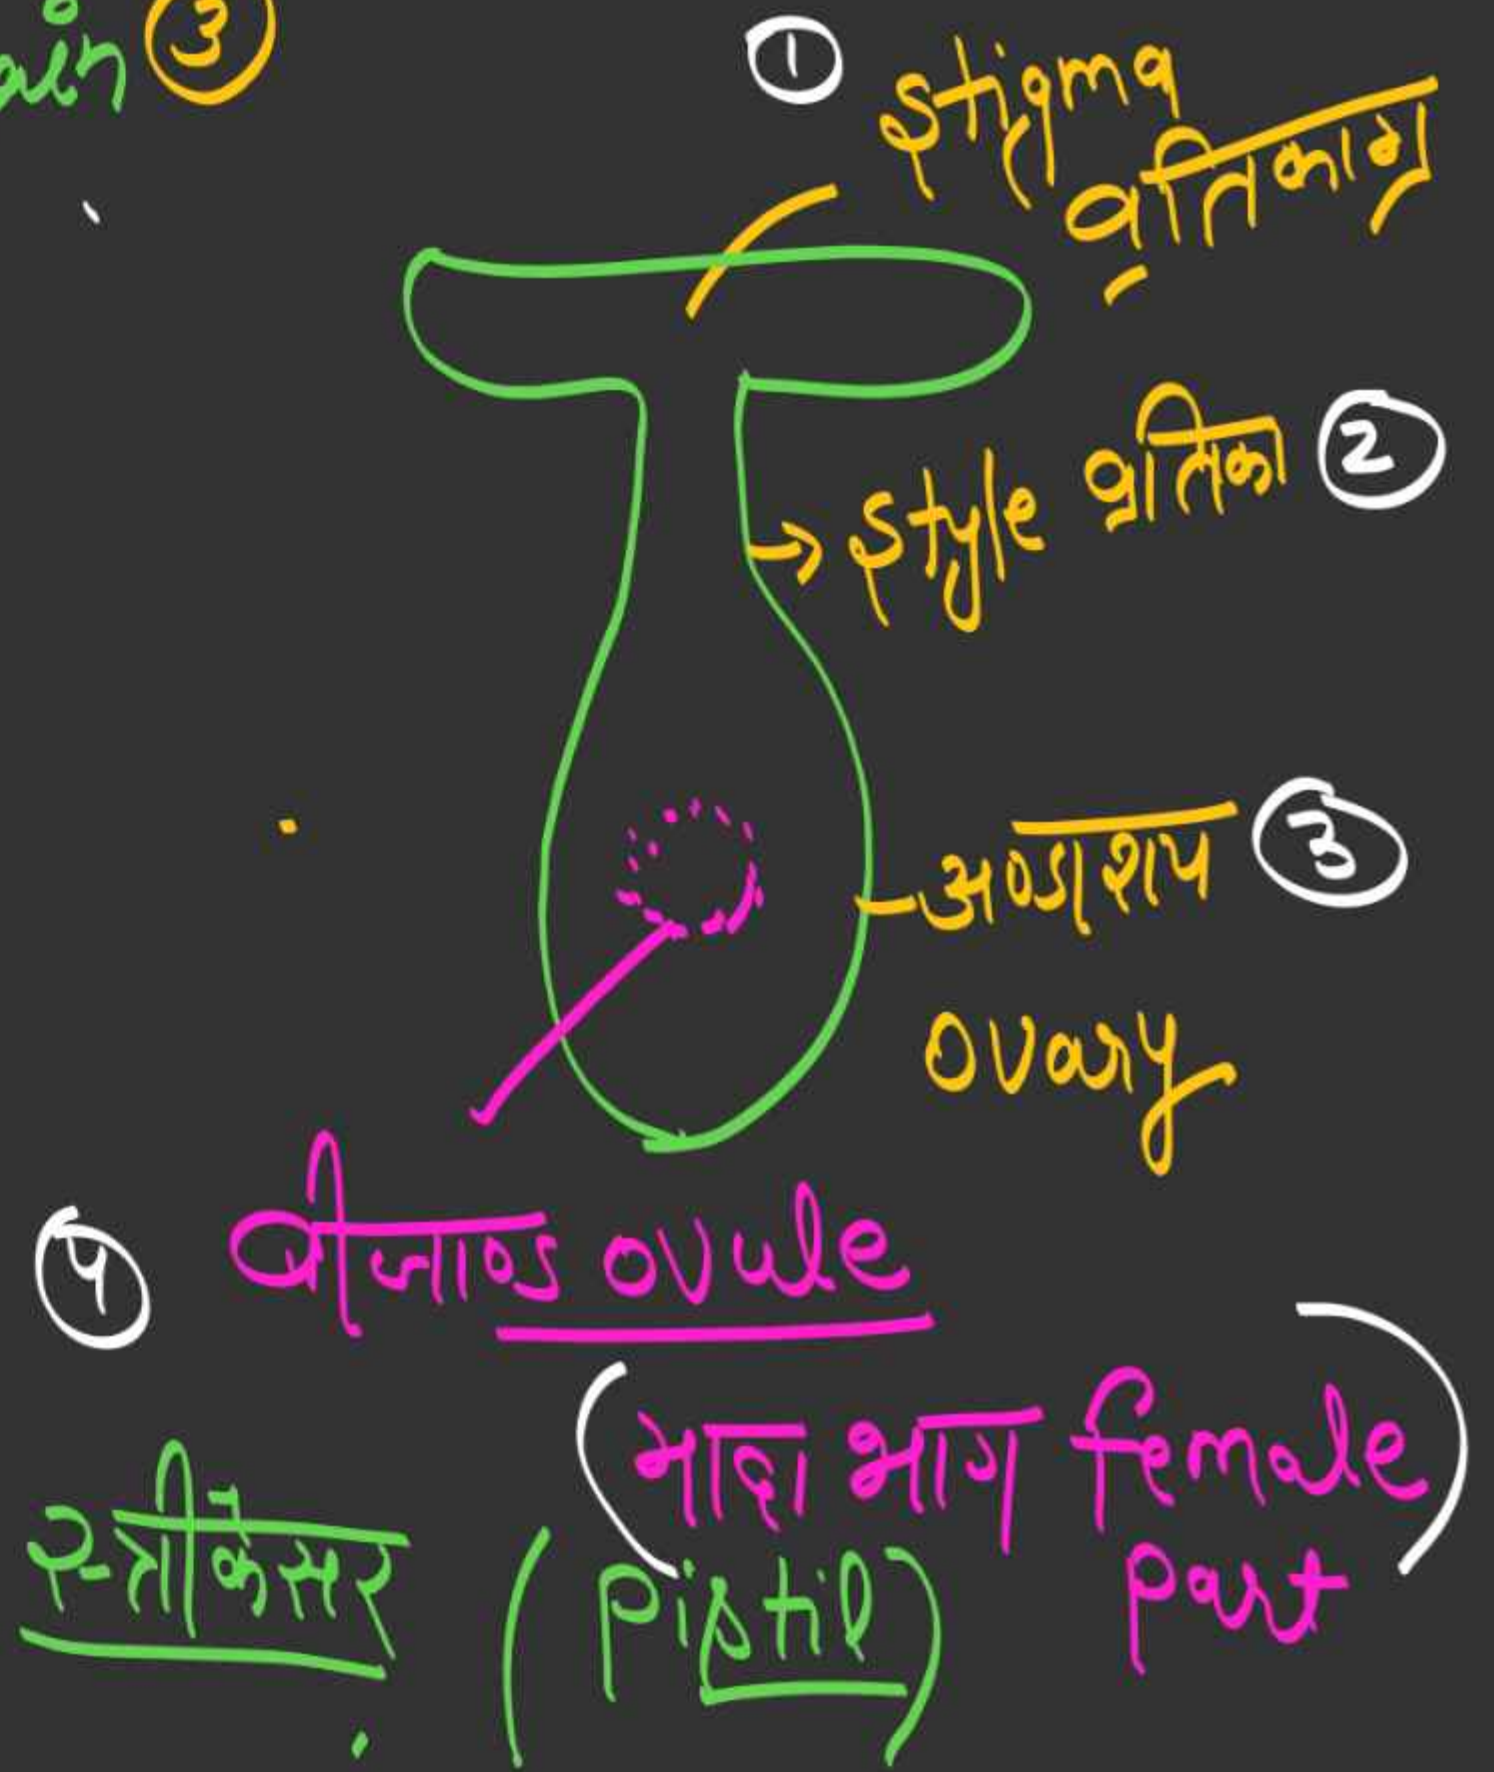 ③
① Stigma
वतिकाग्र
Style वतिका ②
अण्डाशय ③
ovary
④ बीजाण्ड ovule
(मादा भाग female
part)
स्त्रीकेसर (Pistil)